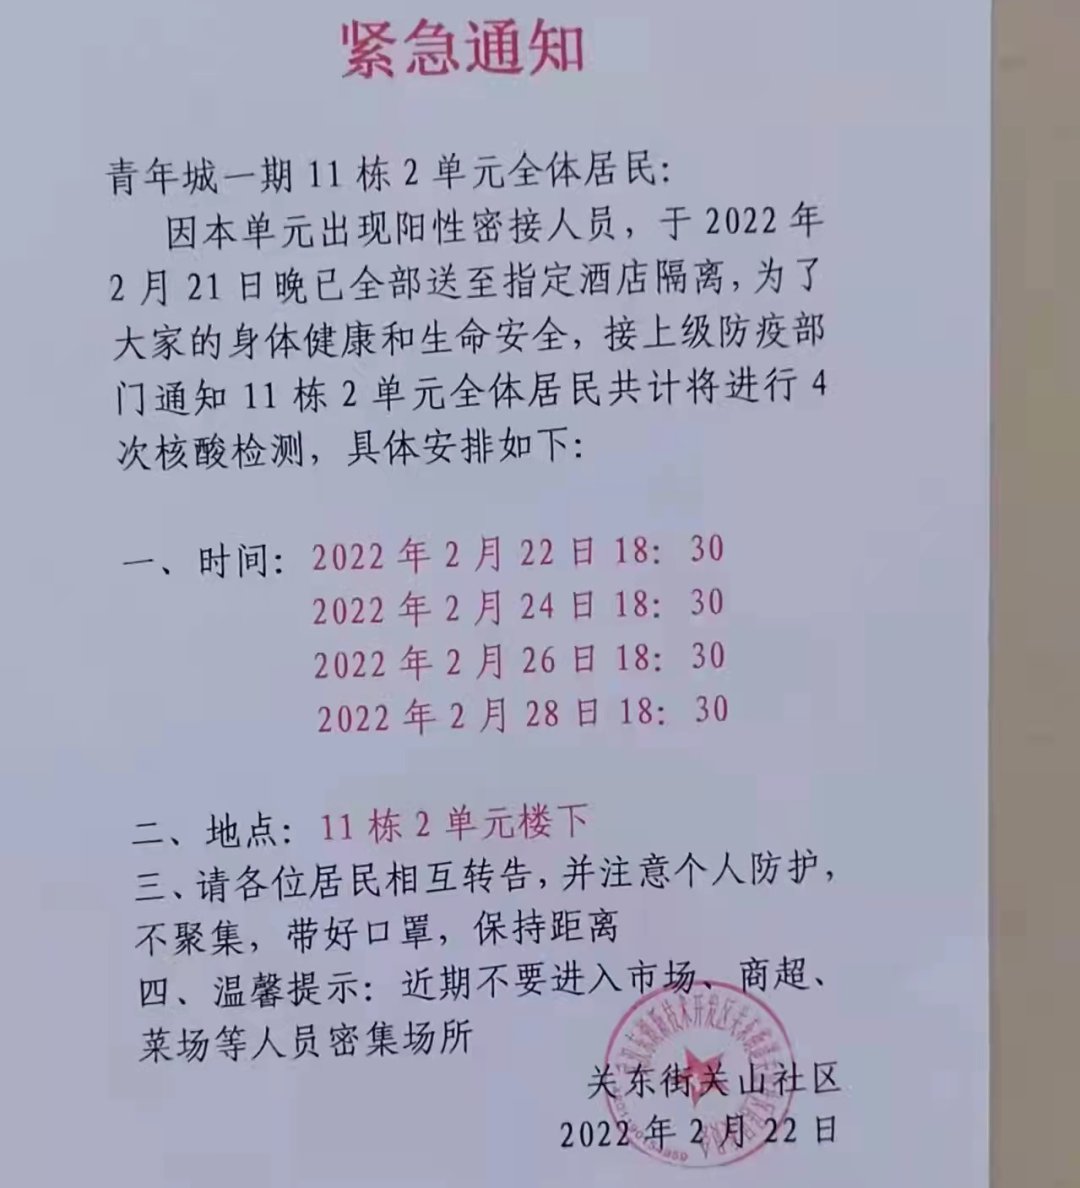 紧急通知
青年城一期 11 栋 2 单元全体居民：
因本单元出现阳性密接人员，于 2022 年
2 月 21 日晚已全部送至指定酒店隔离，为了
大家的身体健康和生命安全，接上级防疫部
门通知 11 栋 2 单元全体居民共计将进行 4
次核酸检测，具体安排如下：
一、时间：2022 年 2 月 22 日 18：30
2022 年 2 月 24 日 18：30
2022 年 2 月 26 日 18：30
2022 年 2 月 28 日 18：30
二、地点：11 栋 2 单元楼下
三、请各位居民相互转告，并注意个人防护，
不聚集，带好口罩，保持距离
四、温馨提示：近期不要进入市场、商超、
菜场等人员密集场所
关东街关山社区
2022 年 2 月 22 日